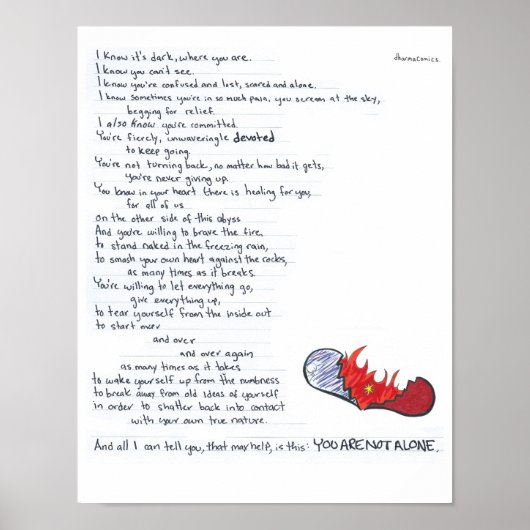 dharmacomics.
I know it's dark, where you are.
I know you can't see.
I know you're confused and lost, scared and alone.
I know sometimes you're in so much pain, you scream at the sky,
begging for relief.
I also know you're committed.
You're fiercly, unwaveringle devoted
to keep going.
You're not turning back, no matter how bad it gets,
you're never giving up.
You know in your heart there is healing for you,
for all of us
on the other side of this abyss
And you're willing to brave the fire,
to stand naked in the freezing rain,
to smash your own heart against the rocks,
as many times as it breaks.
You're willing to let everything go,
give everything up,
to tear yourself from the inside out
to start over
and over
and over again
as many times as it takes
to wake yourself up from the numbness
to break away from old ideas of yourself
in order to shatter back into contact
with your own true nature.
And all I can tell you, that may help, is this: YOU ARE NOT ALONE.